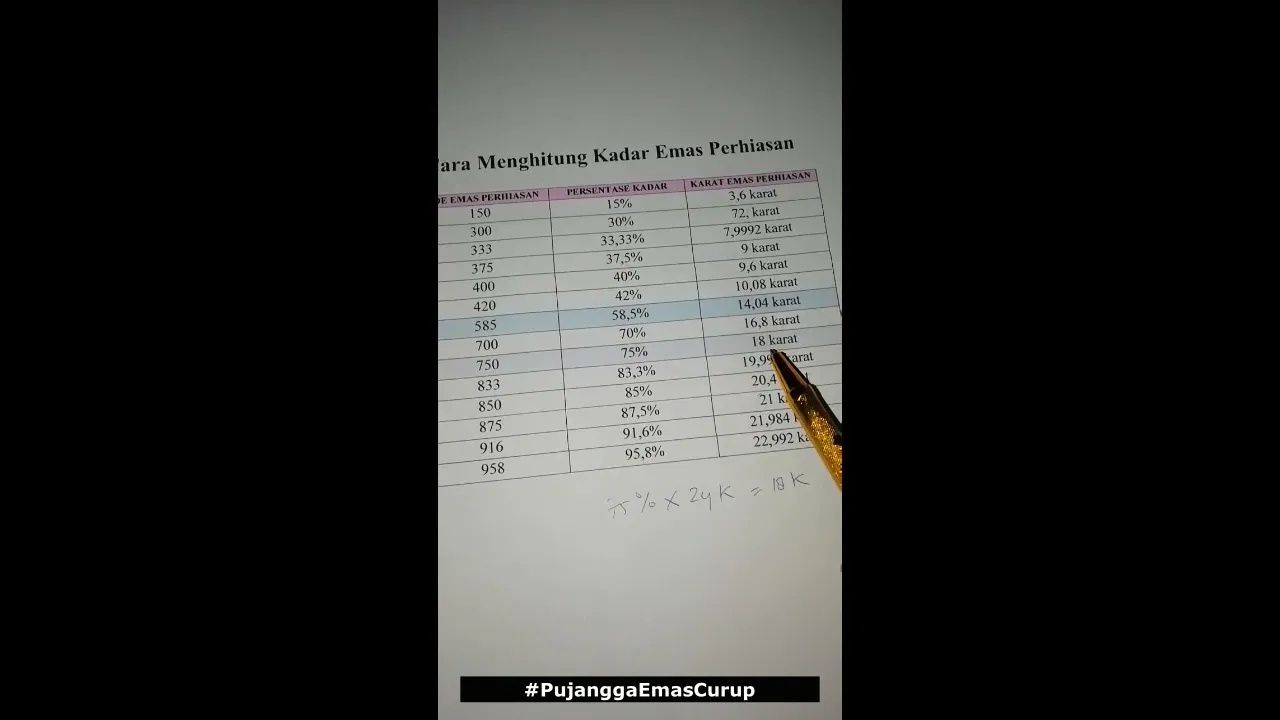 ara Menghitung Kadar Emas Perhiasan
DE EMAS PERHIASAN PERSENTASE KADAR KARAT EMAS PERHIASAN
150 15% 3,6 karat
300 30% 72, karat
333 33,33% 7,9992 karat
375 37,5% 9 karat
400 40% 9,6 karat
420 42% 10,08 karat
585 58,5% 14,04 karat
700 70% 16,8 karat
750 75% 18 karat
833 83,3% 19,99 karat
850 85% 20,4
875 87,5% 21 k
916 91,6% 21,984
958 95,8% 22,992 ka
% X 24 K = 18 K
#PujanggaEmasCurup